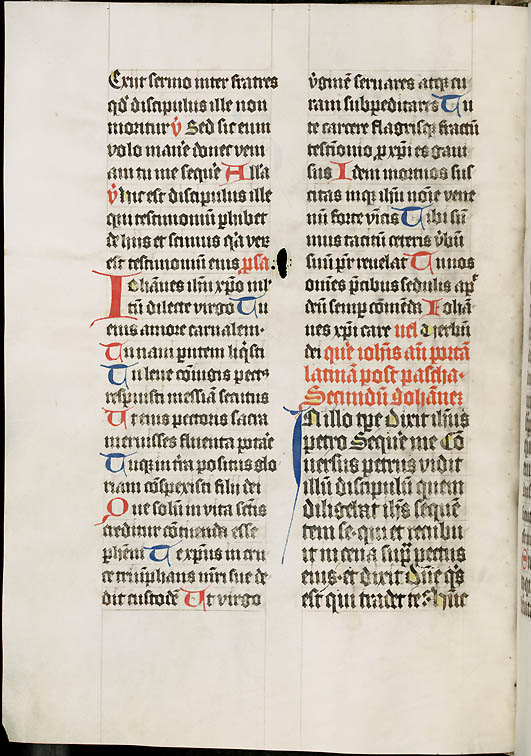 Exiit sermo inter fratres
qd' discipulus ille non
moritur v̓ Sed sic eum
volo man'e donec veni
am tu me seque Alla
v̓ Hic est discipulus ille
qui testimoniū phibet
de hiis et scimus q'a ver
est testimoniū eius psa
Iohānes ihū xpo ml'
tū dilecte virgo Tu
eius amore carnalem·
Tu nani pntem liq'sti
Tu leue coniugis pect'
respuisti messiā secutus
Ut eius pectoris sacra
meruisses fluenta pota'e
Tuq in t'ra positus glo
riam cōspexisti filii dei
Que solū in vita scīs
creditur cōtenda esse
phēni Te xpus in cru
ce triūphans mr̄i sue de
dit custodē Ut virgo
v̓ginē seruares atq cu
ram subpeditares Tu
te carcere flagrisq fractū
testīonio p xpi es gaui
sus Idem mortuos sus
citas inq ihū noīe vene
nū forte vicis Tibi sū
mus tacitū ceteris v̓bū
suū pr reuelat Tu nos
oīnes pcibus sedulis ap'
deū semp cōmēda Iohā
nes xpi care uel dj verbū
dei que ioh'is an portā
latinā post pascha·
Secundū Johānez
In illo tpe dixit ih'us
petro Seque me Cō
uersus petrus vidit
illū discipulū quem
diligebat ih's sequē
tem se· qui et recubu
it in cena sup pectus
eius· et dixit Dn'e q's
est qui tradet te· Hūc